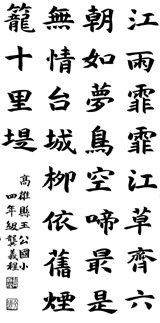 江雨霏霏江草齊六
朝如夢鳥空啼最是
無情台城柳依舊煙
籠十里堤
高雄縣王公國小
四年組龔義程